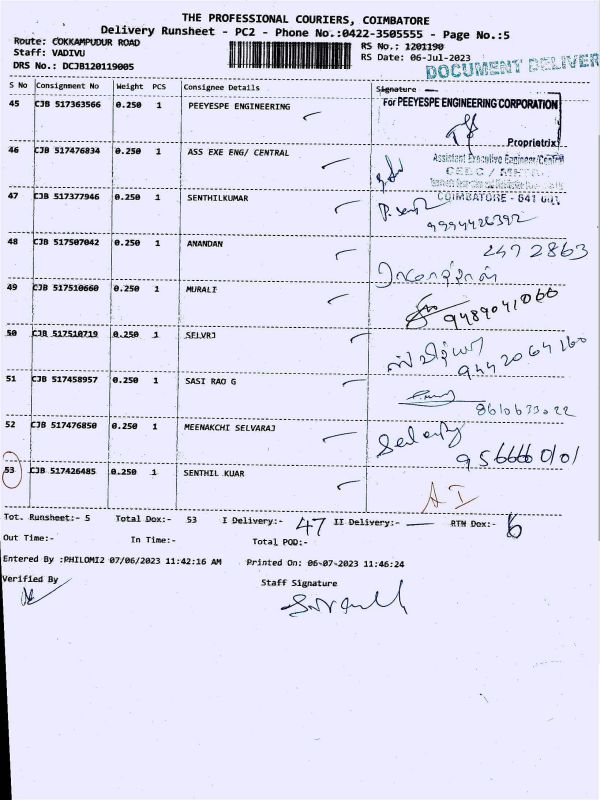 THE PROFESSIONAL COURIERS, COIMBATORE
Delivery Runsheet - PC2 - Phone No.:0422-3505555 - Page No.:5
Route: COKKAMPUDUR ROAD
Staff: VADIVU
DRS No.: DCJB120119005
RS No.: 1201190
RS Date: 06-Jul-2023
DOCUMENT DELIVER
S No Consignment No Weight PCS Consignee Details Signature
45 CJB 517363566 0.250 1 PEEYESPE ENGINEERING
For PEEYESPE ENGINEERING CORPORATION
Proprietrix
46 CJB 517476834 0.250 1 ASS EXE ENG/ CENTRAL
Assistant Executive Engineer/Central
COIMBATORE - 641 001
47 CJB 517377946 0.250 1 SENTHILKUMAR
9994426392
48 CJB 517507042 0.250 1 ANANDAN
2472863
49 CJB 517510660 0.250 1 MURALI
9489041066
50 CJB 517510719 0.250 1 SELVRJ
9442064160
51 CJB 517458957 0.250 1 SASI RAO G
8610633022
52 CJB 517476850 0.250 1 MEENAKCHI SELVARAJ
9566660101
53 CJB 517426485 0.250 1 SENTHIL KUAR
AI
Tot. Runsheet:- 5 Total Dox:- 53 I Delivery:- 47 II Delivery:- — RTN Dox:- 6
Out Time:- In Time:- Total POD:-
Entered By :PHILOMI2 07/06/2023 11:42:16 AM Printed On: 06-07-2023 11:46:24
Verified By Staff Signature